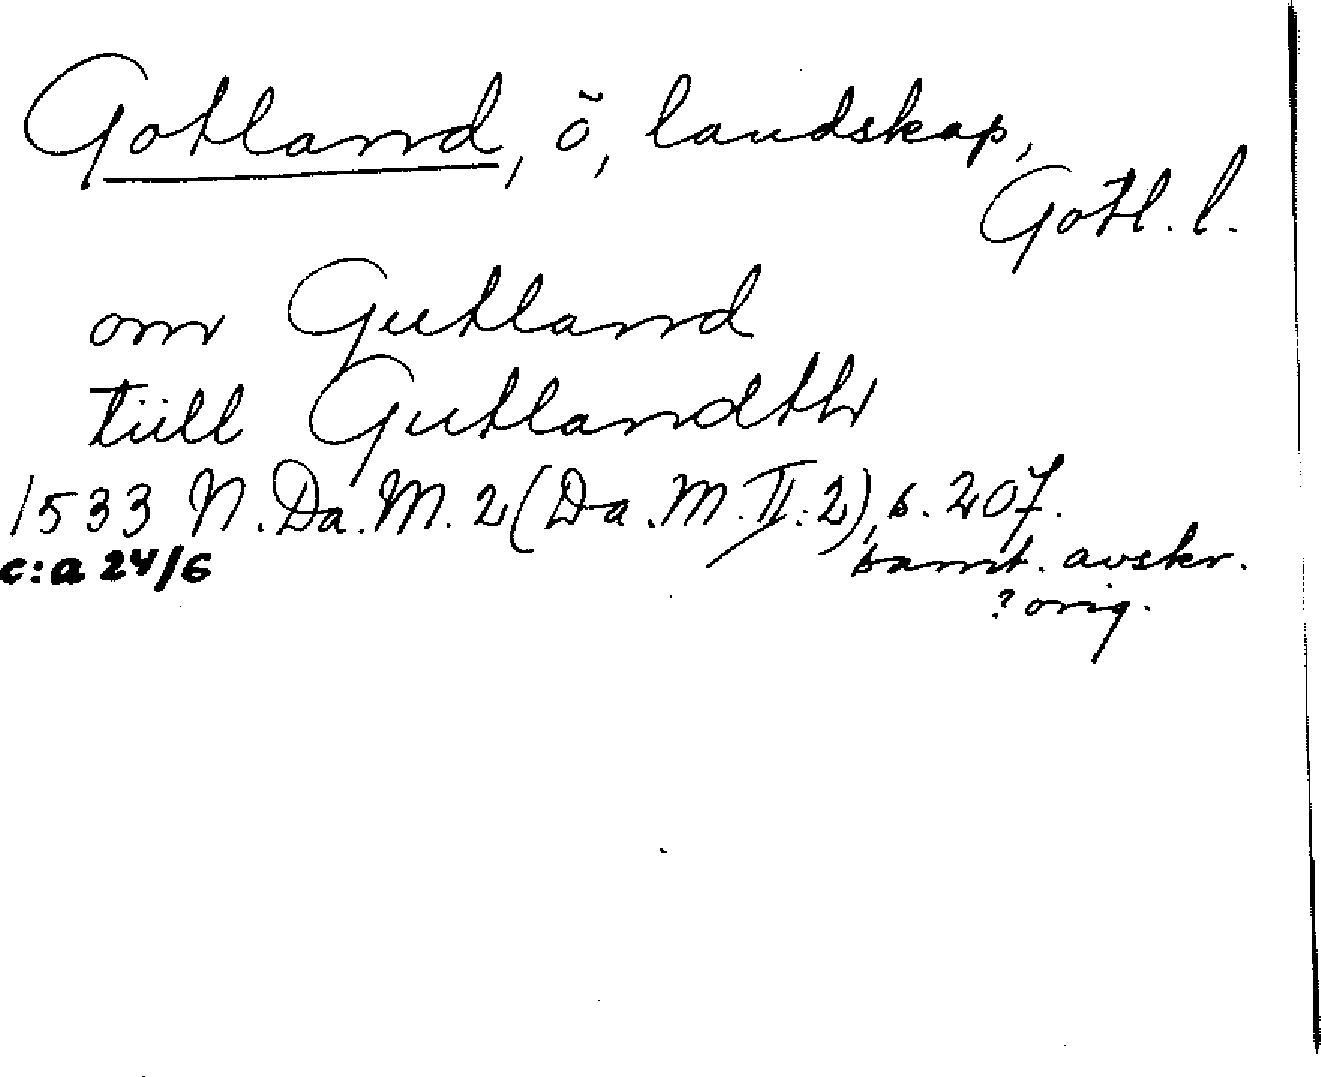 Gotland, ö, landskap,
Gotl. l.
om Gutland
tiill Gutlandth
1533 N. Da. M. 2 (Da. M. II: 2), s. 207.
c:a 24/6
samt. avskr.
? orig.